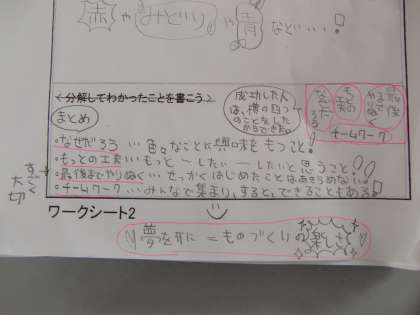 赤 や みどり や 青 など・・・!
<分解してわかったことを書こう>
まとめ
成功した人
は、横の四つ
のことをした
からできた。
なぜだろう
もっとの工夫
最後までやりぬく
チームワーク
・なぜだろう・・・色々なことに興味をもつこと!
・もっとの工夫・・・もっと〜したい〜したいと思うこと!
・最後までやりぬく・・・せっかくはじめたことはあきらめない!
・チームワーク・・・みんなで集まり、するとできることもある!
すごく大切
ワークシート2
夢を形に=ものづくりの楽しさ